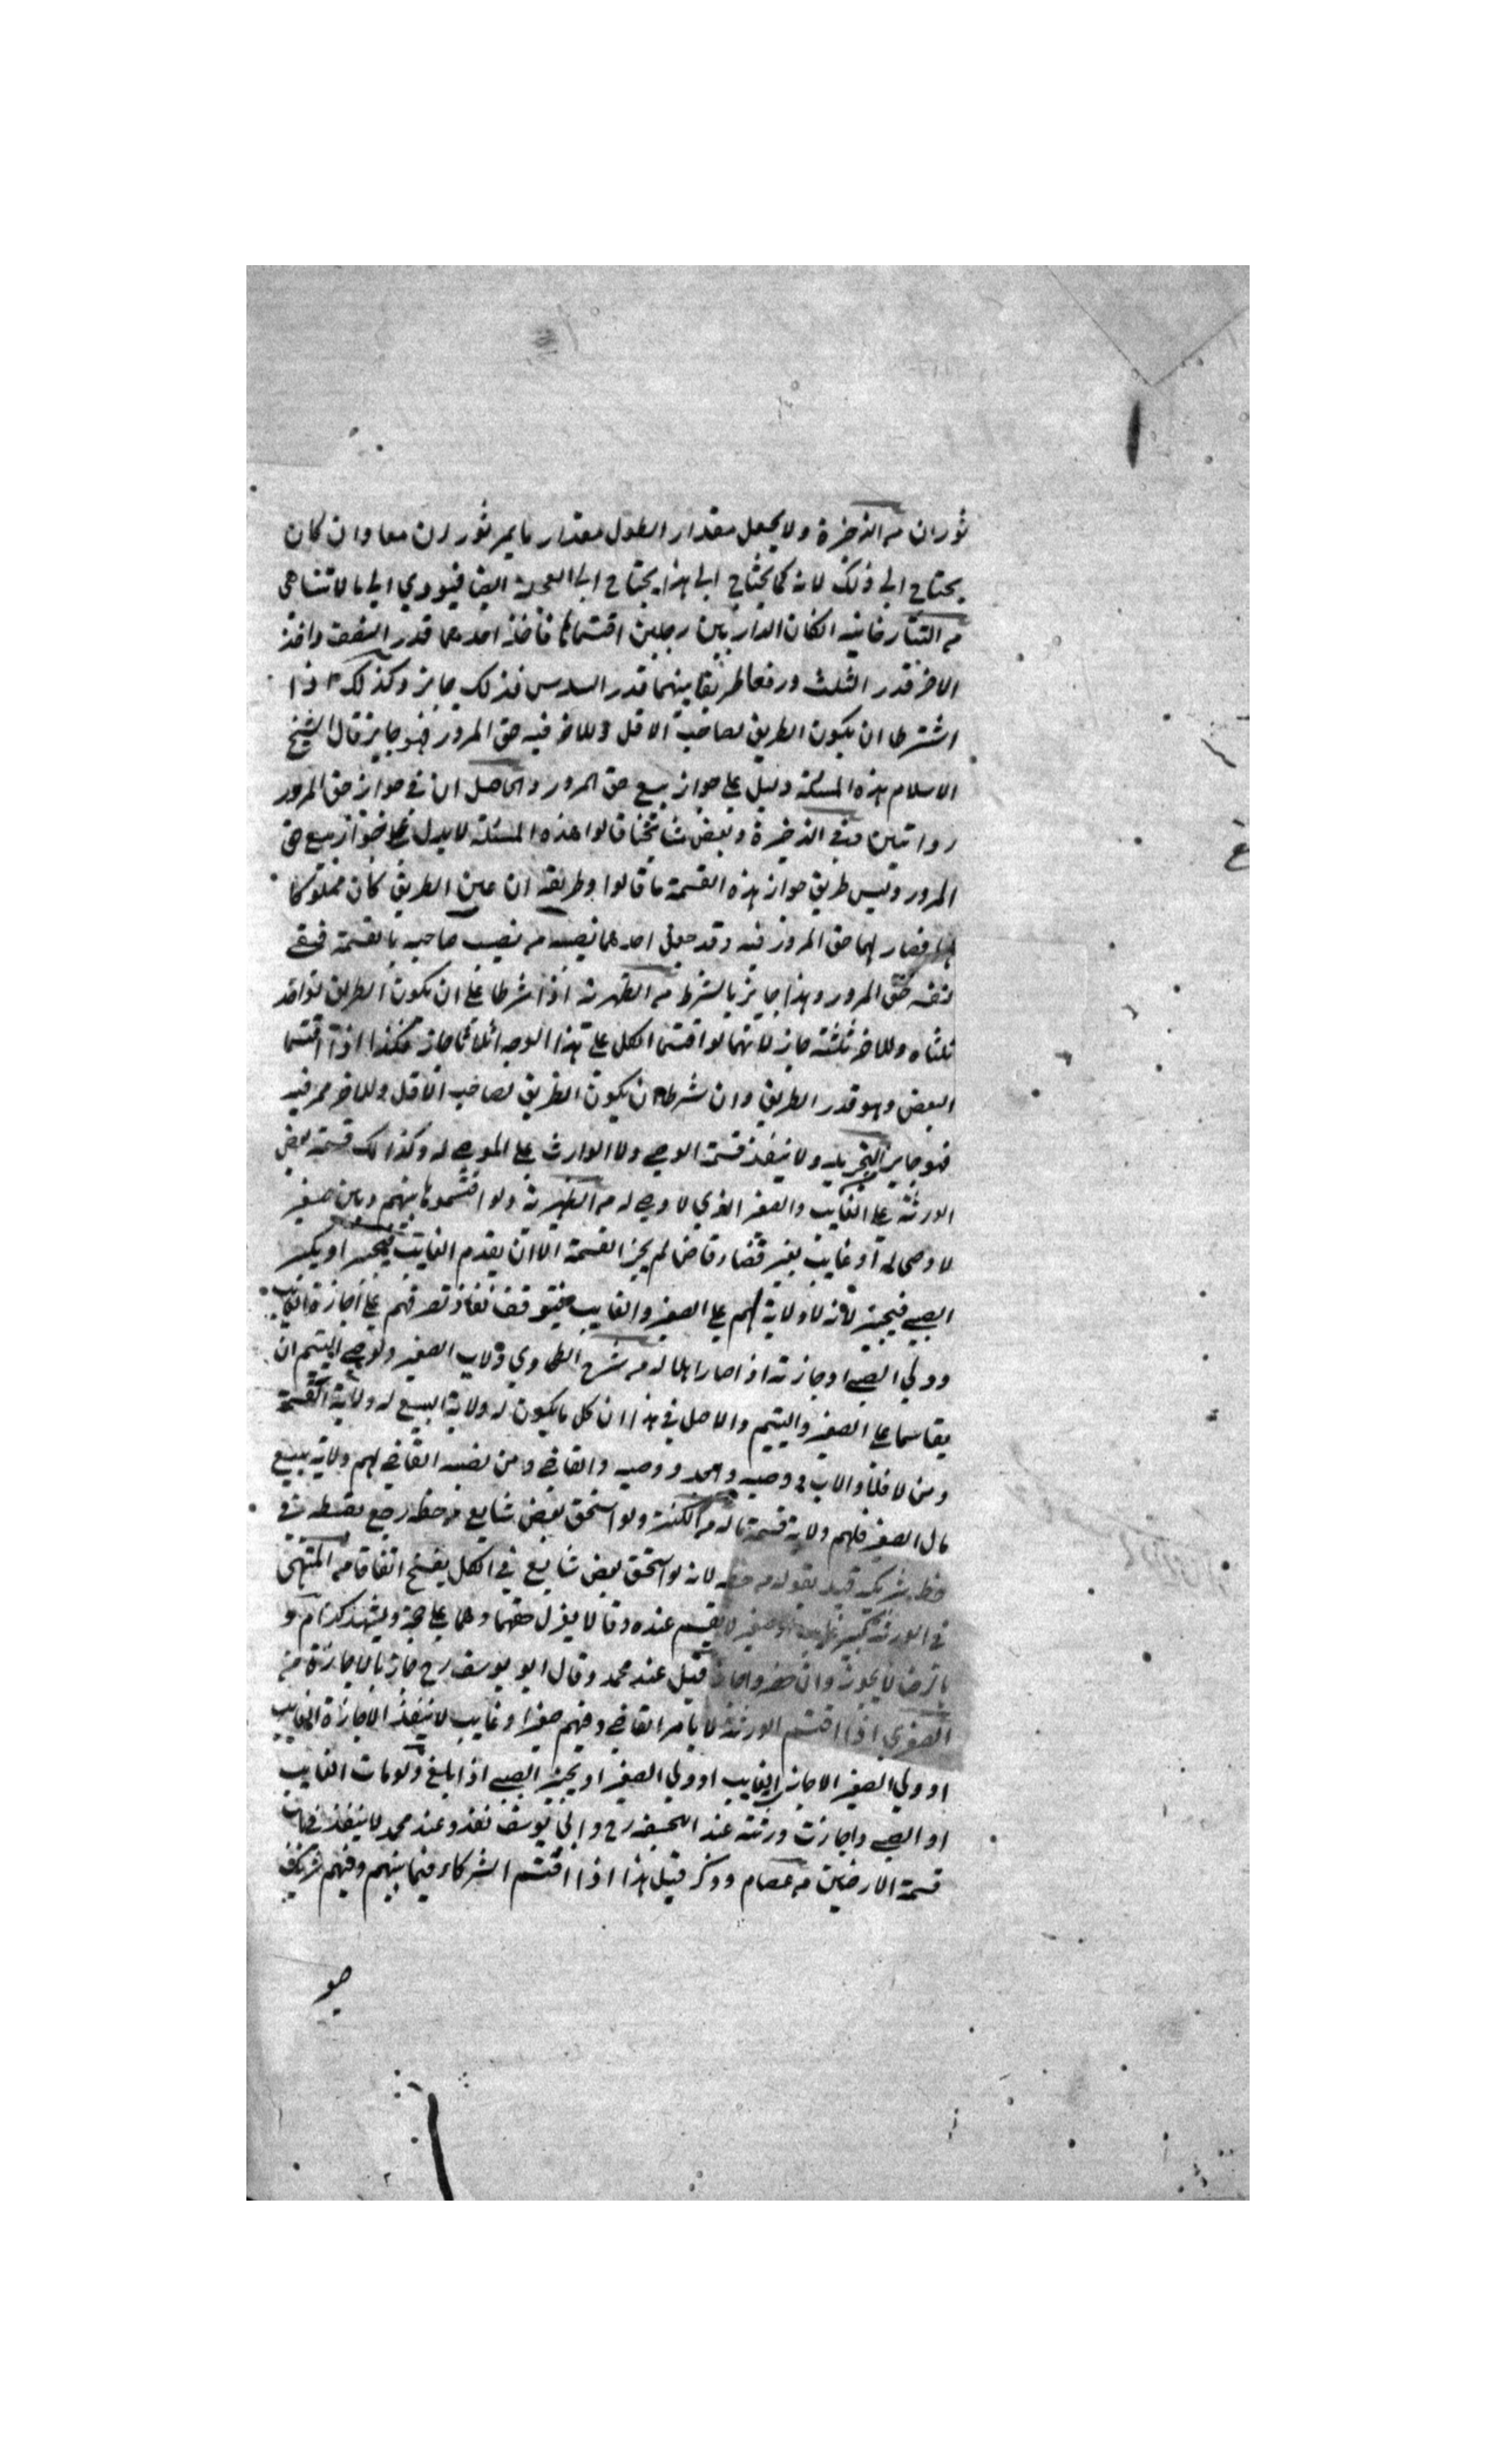 ثوران من الذخيرة ولا يجعل مقدار الطول مقدار ما يمر ثوران معا وان كان
يحتاج الى ذلك لانه كما يحتاج الى هذا يحتاج الى العجلة ايضا فيودي الى ما لا تتناهى
من التتارخانيه اذا كان الدار بين رجلين اقتسماها فاخذ احدهما قدر النصف واخذ
الاخر قدر الثلث ورفعا طريقا بينهما قدر السدس فذلك جايز وكذلك اذا
اشترطا ان يكون الطريق لصاحب الاقل وللاخر فيه حق المرور فهو جايز قال الشيخ
الاسلام هذه المسئلة دليل على جواز بيع حق المرور والحاصل ان في جواز حق المرور
روايتين وفي الذخيرة وبعض مشايخنا قالوا هذه المسئلة لا يدل على جواز بيع حق
المرور وليس طريق جواز هذه القسمة ما قالوا وطريقه ان عين الطريق كان مملوكا
لهما فصار لهما حق المرور فيه وقد جعل احدهما نصيبه من نصيب صاحبه بالقسمة فبقى
لنفسه حق المرور وهذا جايز بالشرط من الظهيرية اذا شرطا على ان يكون الطريق لواحد
ثلثاه وللاخر ثلثه جاز لانهما لو اقتسما الكل على هذا الوجه اثلاثا جاز فكذا اذا اقتسما
البعض وهو قدر الطريق وان شرطا ان يكون الطريق لصاحب الاقل وللاخر ممر فيه
فهو جايز التجريد ولا ينفذ قسمة الوصي ولا الوارث على الموصى له وكذلك قسمة بعض
الورثة على الغايب والصغير الذي لا وصي له من الظهيرية ولو اقتسموها بينهم وبين صغير
لا وصى له او غايب بغير قضاء قاض لم يجز القسمة الا ان يقدم الغايب فيجيز او يكبر
الصبي فيجيز لانه لا ولاية لهم على الصغير والغايب فيتوقف نفاذ تصرفهم على اجازة الغايب
وولي الصبي او اجازته اذا صار اهلا له من شرح الطحاوي ولاب الصغير ولوصي اليتيم ان
يقاسما على الصغير واليتيم والاصل في هذا ان كل ما يكون له ولاية البيع له ولاية القسمة
ومن لا فلا والاب ووصيه والجد ووصيه والقاضي ومن نصبه القاضي لهم ولاية بيع
مال الصغير فلهم ولاية قسمة ماله من الكنز ولو استحق بعض شايع من حظه رجع بقسطه في
حظ شريكه قيد بقوله من حظه لانه لو استحق بعض شايع في الكل يفسخ اتفاقا من المنتهى
في الورثة كبير غايب او صغير لا يقسم عنده وقالا يعزل حقهما وهما على حجة ويشهد
بالرضا لا يجوز وان حضر واجاز قيل عند محمد وقال ابو يوسف رح جاز بالاجازة من
الصغرى اذا اقتسم الورثة لا بامر القاضي وفيهم صغير او غايب لا ينفذ الا باجازة الغايب
او ولي الصغير الاجاز الغايب او ولي الصغير او يجيز الصبي اذا بلغ ولو مات الغايب
او الصبي واجازت ورثته عند ابي حنيفة رح وابي يوسف نفذ وعند محمد لا ينفذ في باب
قسمة الارضين من عصام وذكر قبل هذا اذا اقتسم الشركاء فيما بينهم وفيهم شريك